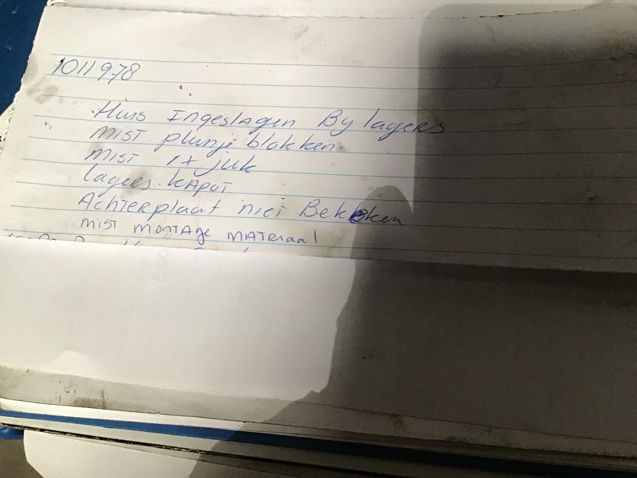 1011978
Huis Ingeslagen By lagers
mist plunje blokken
mist 1x juk
lagers kapot
Achterplaat niet Bekeken
mist montage materiaal